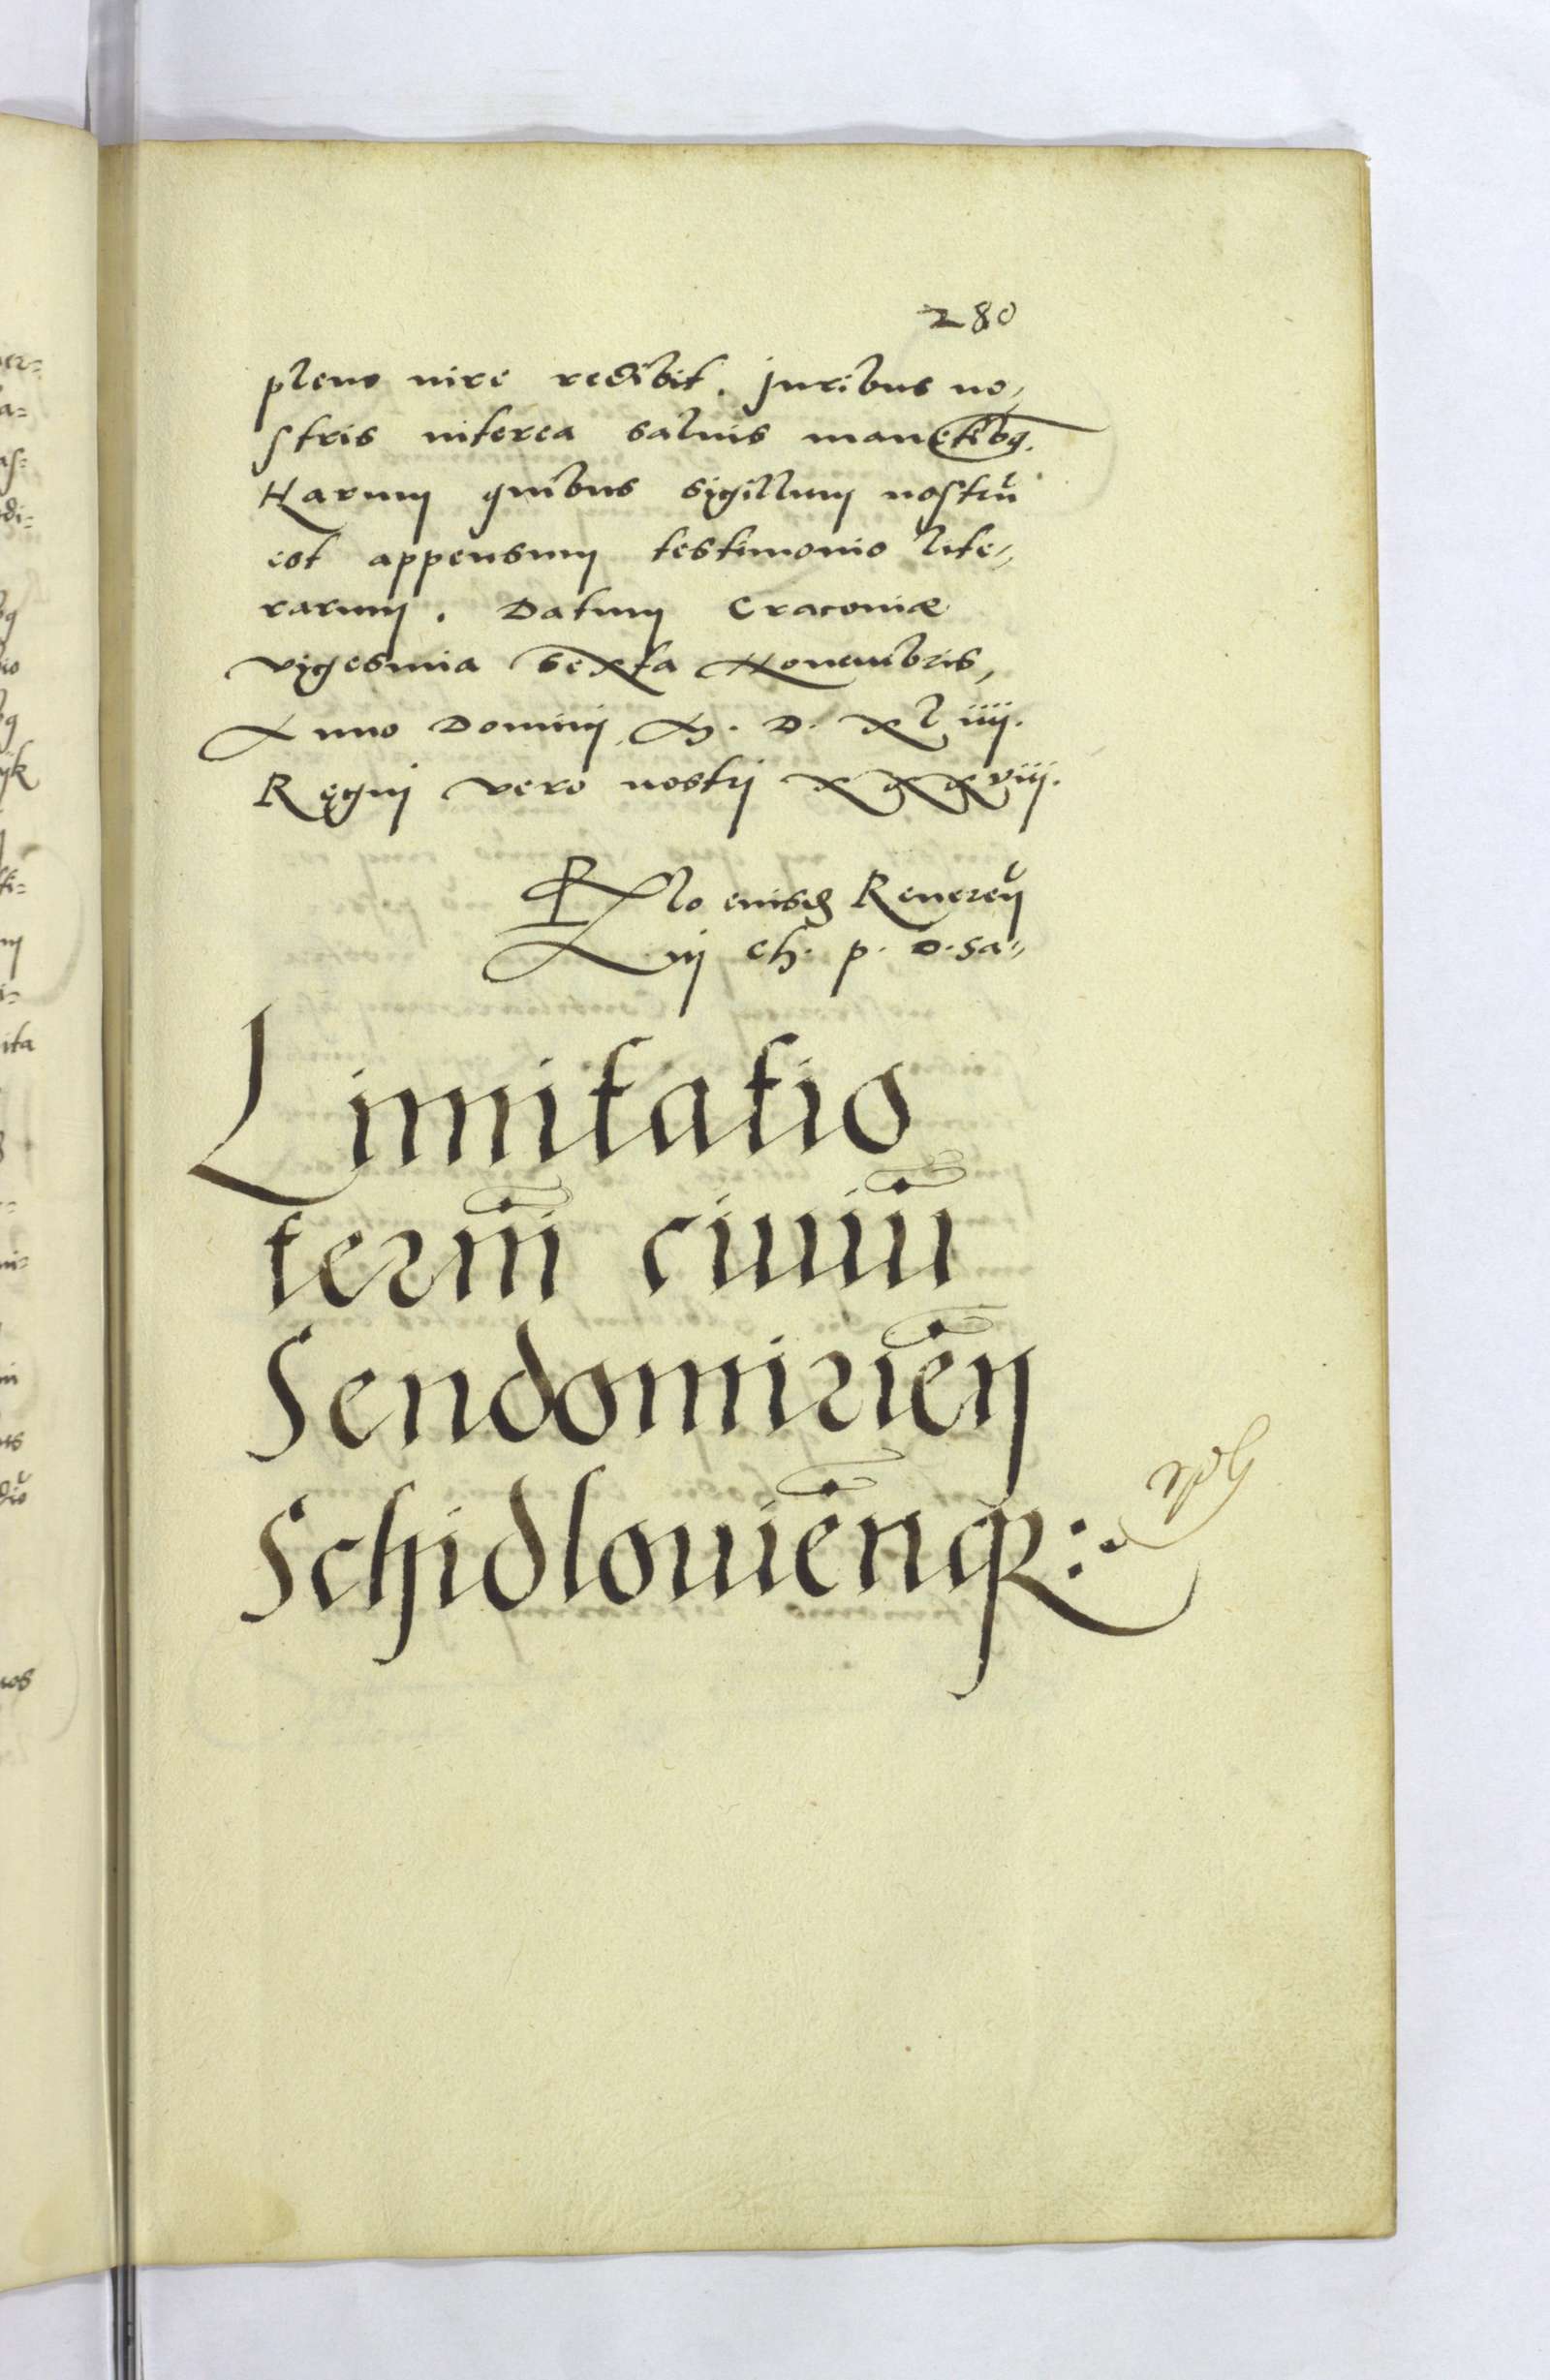 280
pleno iure redibit. Juribus no-
stris interea saluis manētibꝫ.
Harum quibus sigillum nostrū
est appensum testimonio lite-
rarum. Datum Cracoviæ
vigesima sexta Novembris,
Anno Domini M. D. xliiij.
Regni vero nostri xxxviij.
Rlo eiusdꝫ Reveren
in Ch. p. D. Sa-
Limitatio
termī ciuiū
Sendomiriēn
Schidlouiēnqꝫ: